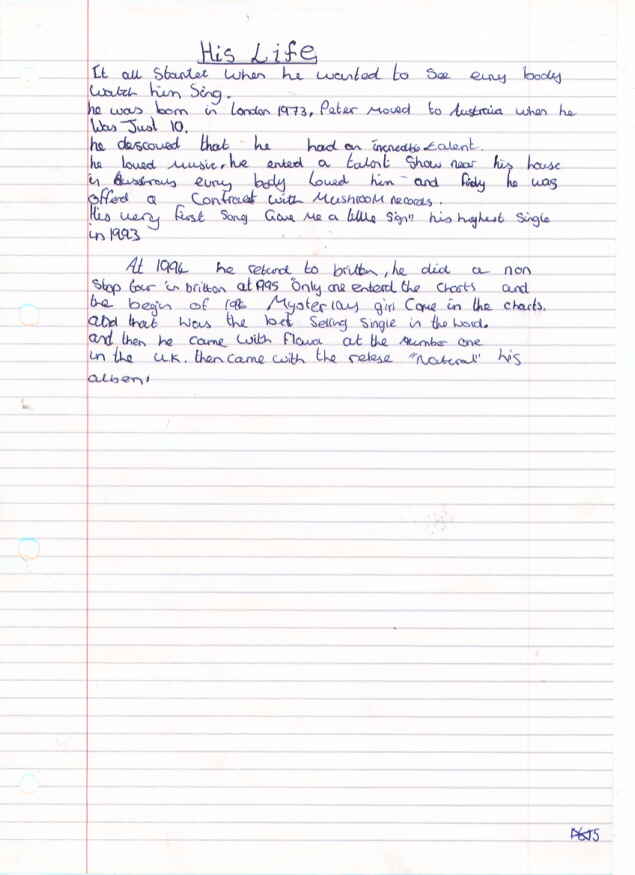 His Life
It all Startet when he wanted to See evry body
Watch him Sing.
he was born in London 1973, Peter Moved to Austraia when he
Was Just 10.
he descoued that he had an increatble talent.
he loved Music, he entred a talent Show near his house
in evry body loved him and he was
offerd a Contract with MushrooM records.
His very first Song Gave Me a little Sign" his highest Single
in 1993
At 1994 he returnd to britton, he did a non
Stop tour in britton at 1995 Only one enterd the Charts and
the begin of 1996 Mysterious girl Came in the charts.
and that Was the best Selling Single in the world.
and then he came with Flava at the Number one
in the U.K. then came with the relese "Natural" his
alben.